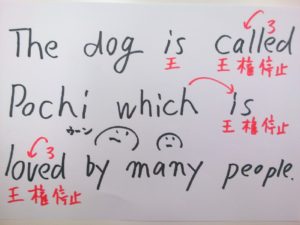 The dog is called
3
王 王権停止
Pochi which is
王権停止
カーン
loved by many people.
3
王権停止